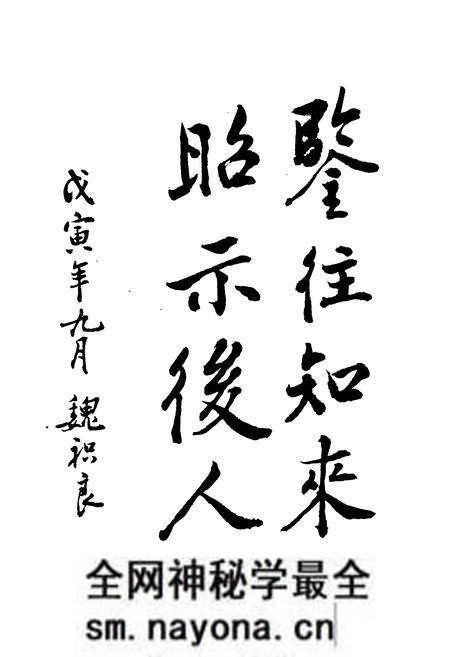 鑒往知來
昭示後人
戊寅年九月 魏良
全网神秘学最全
sm.nayona.cn